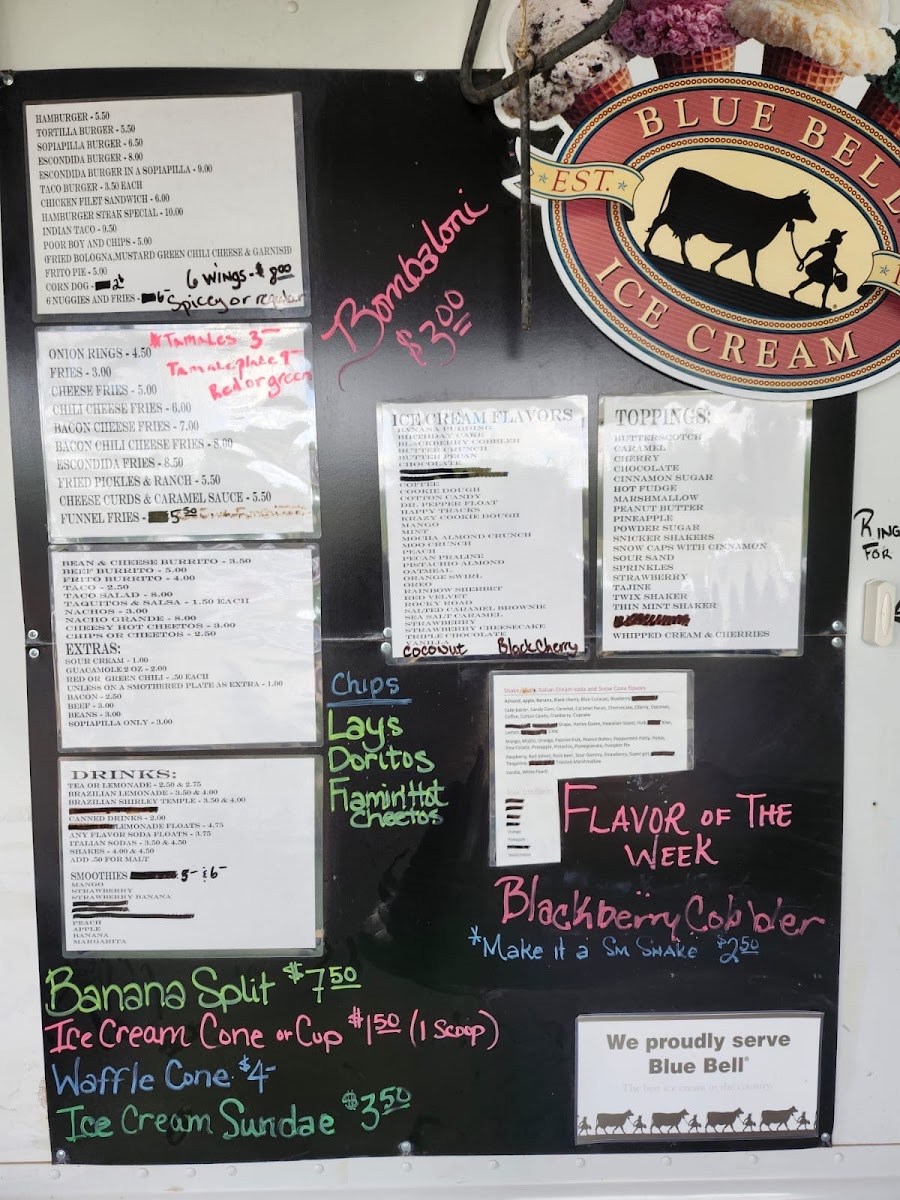 HAMBURGER - 5.50
TORTILLA BURGER - 5.50
SOPIAPILLA BURGER - 6.50
ESCONDIDA BURGER - 8.00
ESCONDIDA BURGER IN A SOPIAPILLA - 9.00
TACO BURGER - 3.50 EACH
CHICKEN FILET SANDWICH - 6.00
HAMBURGER STEAK SPECIAL - 10.00
INDIAN TACO - 9.50
POOR BOY AND CHIPS - 5.00
(FRIED BOLOGNA,MUSTARD GREEN CHILI CHEESE & GARNISH)
FRITO PIE - 5.00
CORN DOG -
6 NUGGIES AND FRIES - 6-
6 WINGS - $8.00
Spicey or regular
ONION RINGS - 4.50
FRIES - 3.00
CHEESE FRIES - 5.00
CHILI CHEESE FRIES - 6.00
BACON CHEESE FRIES - 7.00
BACON CHILI CHEESE FRIES - 8.00
ESCONDIDA FRIES - 8.50
FRIED PICKLES & RANCH - 5.50
CHEESE CURDS & CARAMEL SAUCE - 5.50
FUNNEL FRIES - 5.50
*Tamales 3-
Tamale plate 9-
Red or green
BEAN & CHEESE BURRITO - 3.50
BEEF BURRITO - 5.00
FRITO BURRITO - 4.00
TACO - 2.50
TACO SALAD - 8.00
TAQUITOS & SALSA - 1.50 EACH
NACHOS - 3.00
NACHO GRANDE - 8.00
CHEESY HOT CHEETOS - 3.00
CHIPS OR CHEETOS - 2.50
EXTRAS:
SOUR CREAM - 1.00
GUACAMOLE 2 OZ - 2.00
RED OR GREEN CHILI - .50 EACH
UNLESS ON A SMOTHERED PLATE AS EXTRA - 1.00
BACON - 2.50
BEEF - 3.00
BEANS - 3.00
SOPIAPILLA ONLY - 3.00
DRINKS:
TEA OR LEMONADE - 2.50 & 2.75
BRAZILIAN LEMONADE - 3.50 & 4.00
BRAZILIAN SHIRLEY TEMPLE - 3.50 & 4.00
CANNED DRINKS - 2.00
LEMONADE FLOATS - 4.75
ANY FLAVOR SODA FLOATS - 3.75
ITALIAN SODAS - 3.50 & 4.50
SHAKES - 4.00 & 4.50
ADD .50 FOR MALT
SMOOTHIES 5- & 6-
MANGO
STRAWBERRY
STRAWBERRY BANANA
PEACH
APPLE
BANANA
MARGARITA
Bombaloni
$3.00
BLUE BELL
EST.
ICE CREAM
ICE CREAM FLAVORS
BANANA PUDDING
BIRTHDAY CAKE
BLACKBERRY COBBLER
BUTTER CRUNCH
BUTTER PECAN
CHOCOLATE
COFFEE
COOKIE DOUGH
COTTON CANDY
DR. PEPPER FLOAT
HAPPY TRACKS
KRAZY COOKIE DOUGH
MANGO
MINT
MOCHA ALMOND CRUNCH
MOO CRUNCH
PEACH
PECAN PRALINE
PISTACHIO ALMOND
OATMEAL
ORANGE SWIRL
OREO
RAINBOW SHERBET
RED VELVET
ROCKY ROAD
SALTED CARAMEL BROWNIE
SEA SALT CARAMEL
STRAWBERRY
STRAWBERRY CHEESECAKE
TRIPLE CHOCOLATE
VANILLA
Coconut Black Cherry
TOPPINGS:
BUTTERSCOTCH
CARAMEL
CHERRY
CHOCOLATE
CINNAMON SUGAR
HOT FUDGE
MARSHMALLOW
PEANUT BUTTER
PINEAPPLE
POWDER SUGAR
SNICKER SHAKERS
SNOW CAPS WITH CINNAMON
SOUR SAND
SPRINKLES
STRAWBERRY
TAJINE
TWIX SHAKER
THIN MINT SHAKER
WHIPPED CREAM & CHERRIES
RING
FOR
Chips
Lays
Doritos
Flamin Hot
Cheetos
Italian Cream soda and Snow Cone flavors
Almond, apple, Banana, Black cherry, Blue Curacao, Blueberry
Cake Batter, Candy Corn, Caramel, Caramel Pecan, Cheesecake, Cherry, Coconut,
Coffee, Cotton Candy, Cranberry, Cupcake
Grape, Harley Quinn, Hawaiian Island, Hulk, Kiwi,
Lemon, Lime
Mango, Mojito, Orange, Passion fruit, Peanut Butter, Peppermint Patty, Pickle,
Pina Colada, Pineapple, Pistachio, Pomegranate, Pumpkin Pie
Raspberry, Red Velvet, Root Beer, Sour Gummy, Strawberry, Super girl,
Tangerine, Toasted Marshmallow
Vanilla, White Peach
Orange
Pineapple
FLAVOR OF THE
WEEK
Blackberry Cobbler
*Make it a Sm Shake $2.50
Banana Split $7.50
Ice Cream Cone or Cup $1.50 (1 Scoop)
Waffle Cone $4-
Ice Cream Sundae $3.50
We proudly serve
Blue Bell®
The best ice cream in the country